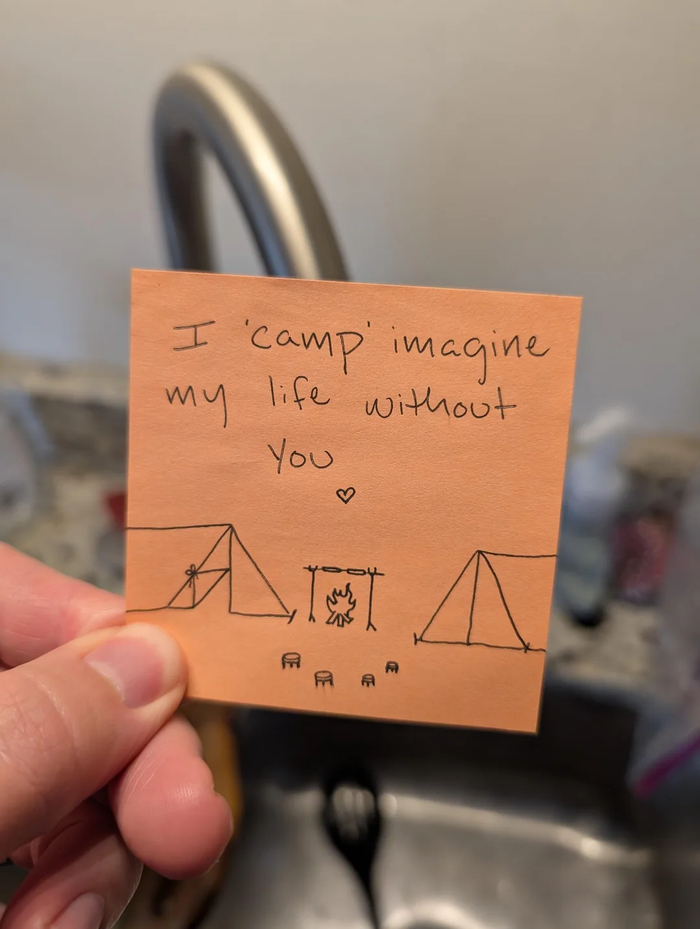 I 'camp' imagine
my life without
you